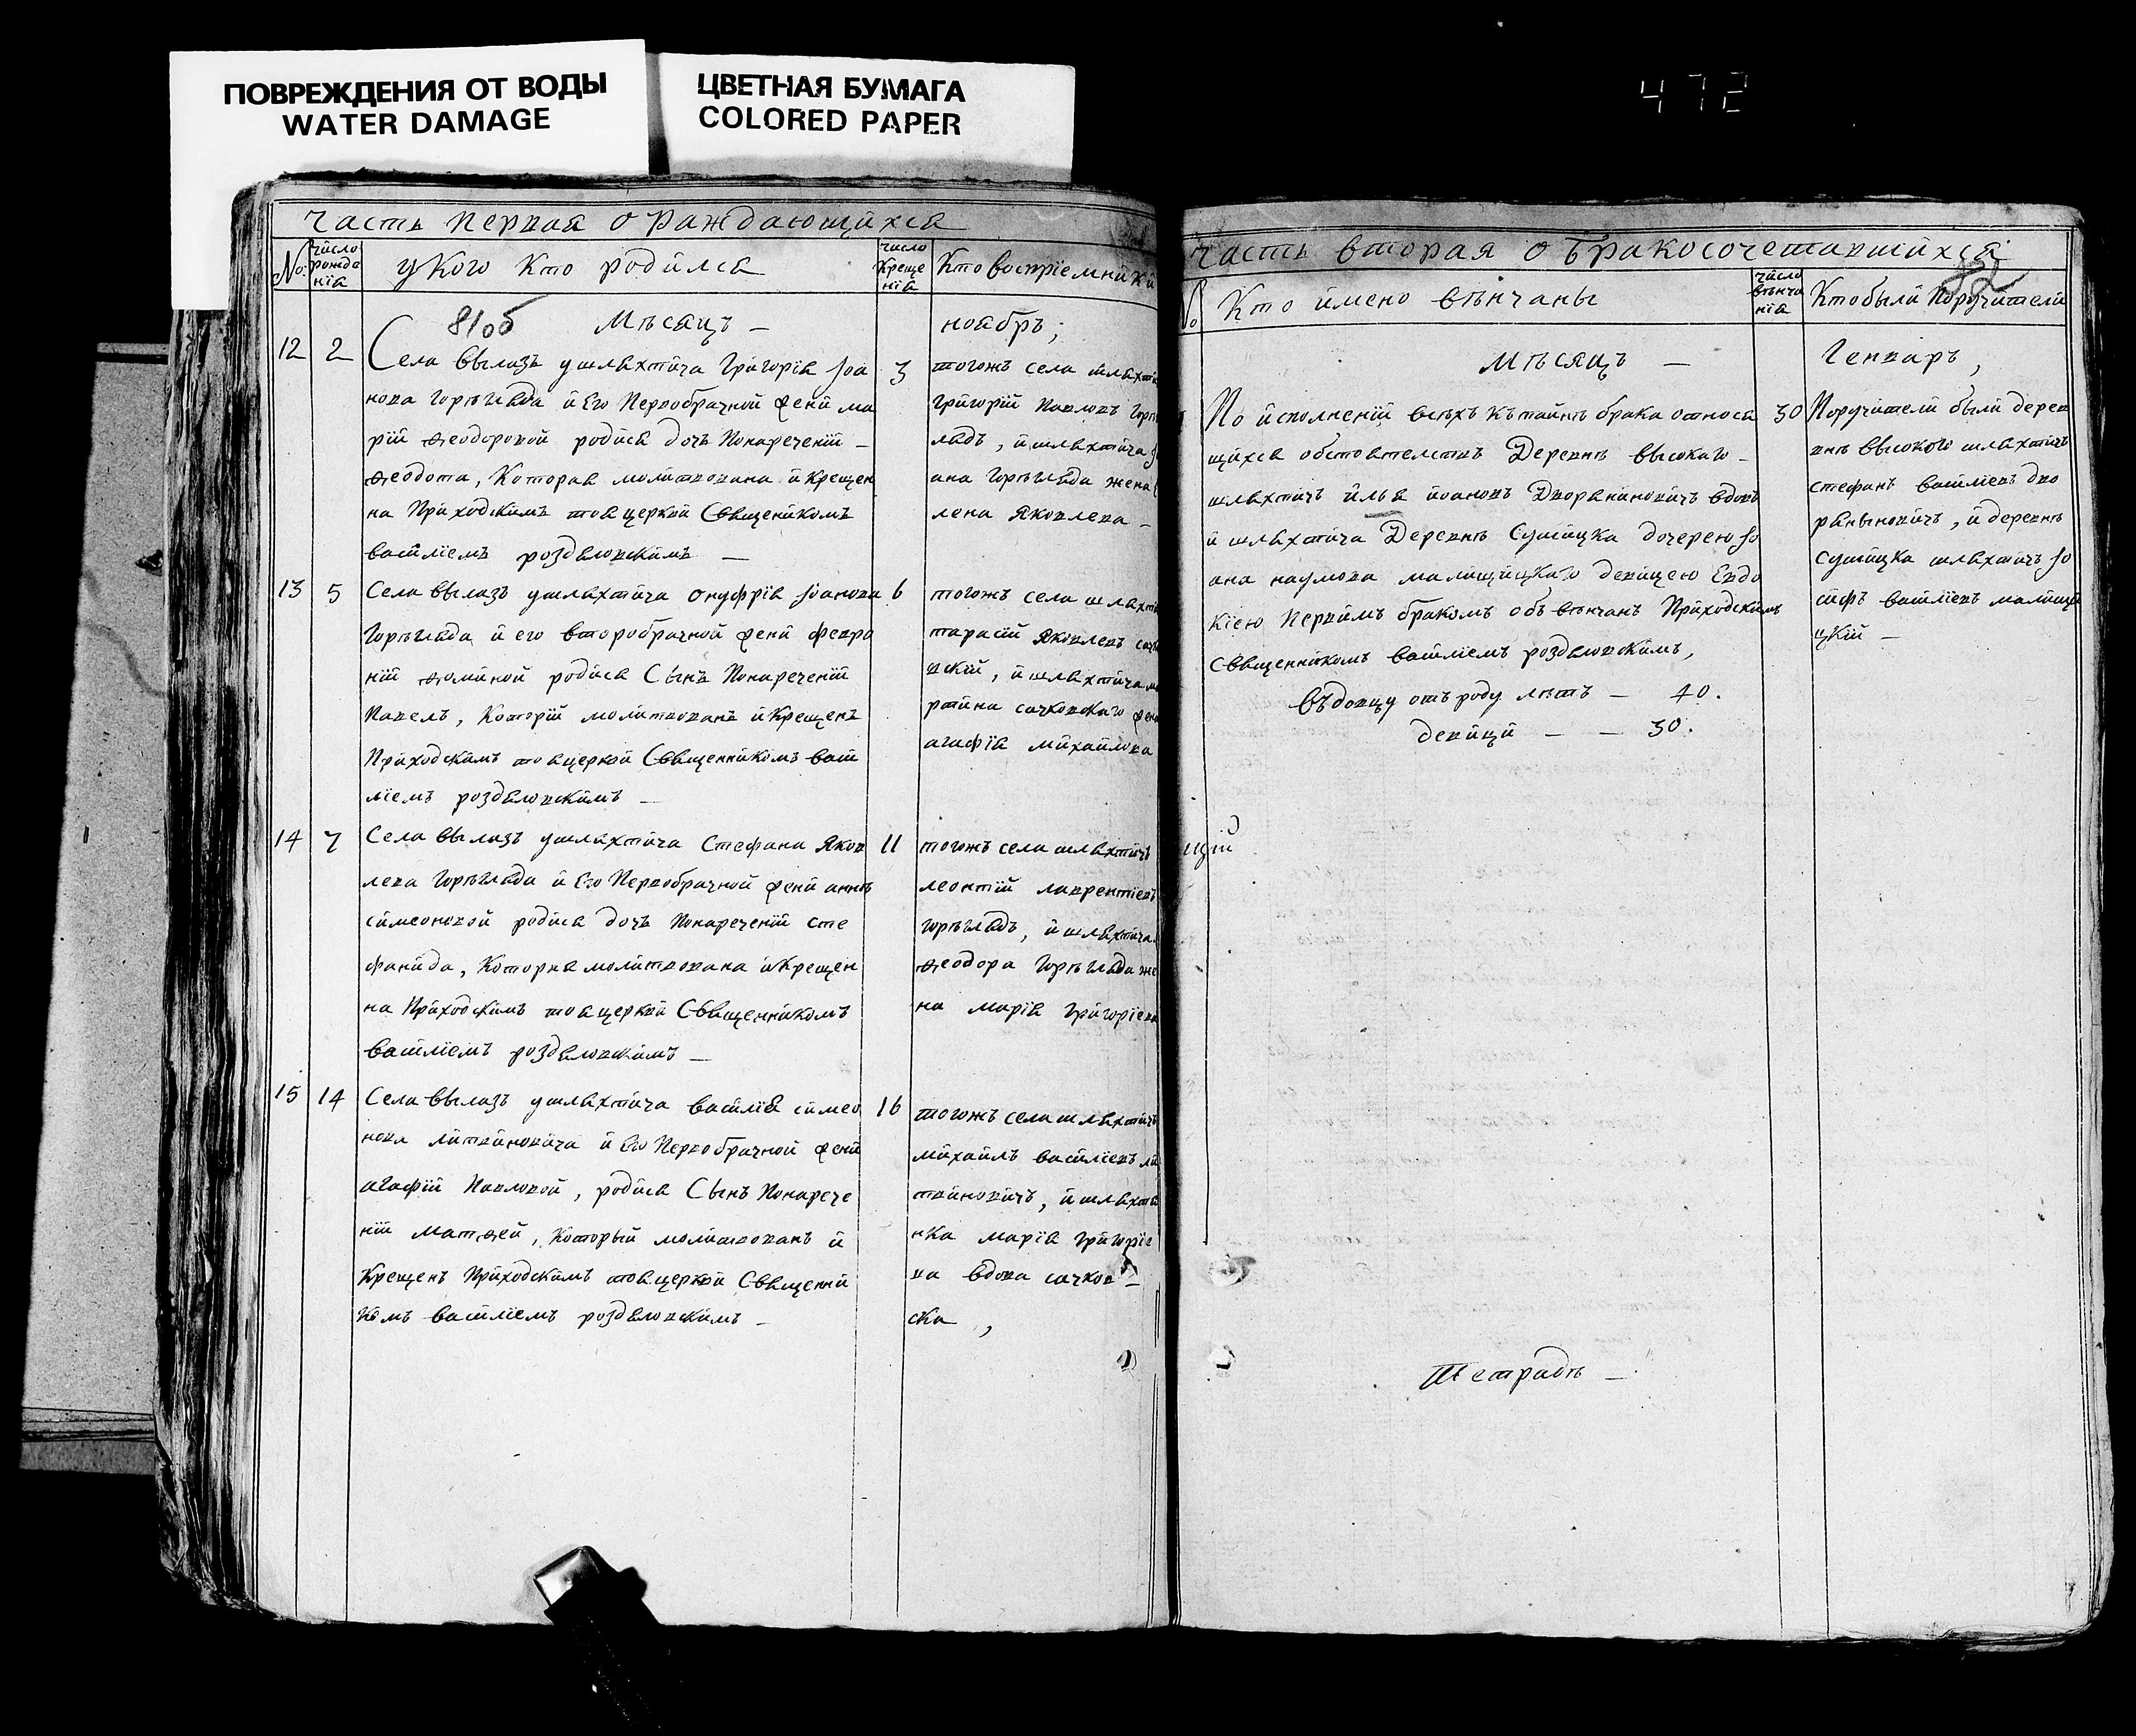 ПОВРЕЖДЕНИЯ ОТ ВОДЫ
WATER DAMAGE
ЦВЕТНАЯ БУМАГА
COLORED PAPER
472
Часть первая о раждающихся
No:
число рожде нія
у кого кто родился
число креще нія
Кто воспріемники
Мѣсяцъ — ноябрь;
12 2
Села вылазъ у шляхтича Григорія Іоа
нова Горегляда и Его Первобрачной жени ма
ріи Ѳеодоровой родися дочь Понареченіи —
Ѳеодота, Которая молитвована и Крещен
на Приходскимъ тоя церкви Священикомъ
василіемъ роздяловскимъ —
3
тогожъ села шляхти
Григорій Павловъ Горе
лядъ, и шляхтича Іо
ана Горегляда жена
лена Яковлева —
13 5
Села вылазъ у шляхтича онуфрія Іоанова
Горегляда и его второбрачной жени февро
ніи Ѳоминой родися Сынъ Понареченіи
Павелъ, Которій молитвованъ и Крещенъ
Приходскимъ тоя церкви Священникомъ васи
ліемъ роздяловскимъ —
6
тогожъ села шляхти
тарасій Яковлевъ сачко
вскій, и шляхтича ма
ртина сачковскаго жена
агафія михайлова
14 7
Села вылазъ у шляхтича Стефана Яков
лева Горегляда и Его Первобрачной жени аннѣ
симеоновой родися дочь Понареченіи сте
фанида, Которая молитвована и Крещен
на Приходскимъ тоя церкви Священникомъ
василіемъ роздяловскимъ —
11
тогожъ села шляхтичъ
леонтій лаврентіевъ
горегладъ, и шляхтича
Ѳеодора Горегляда же
на марія Григоріева
15 14
Села вылазъ у шляхтича василія симео
нова литвиновича и Его Первобрачной жени
агафіи Павловой, родися Сынъ Понарече
ніи матѳей, Который молитвованъ и
Крещенъ Приходскимъ тоя церкви Священни
комъ василіемъ роздяловскимъ —
16
тогожъ села шляхтичъ
михаилъ василіевъ ли
твиновичъ, и шляхтя
нка марія Григоріе
ва вдова сачков —
ска,
Часть вторая о бракосочетавшихся
No
Кто имено вѣнчаны
число вѣнча нія
Кто были поручители
Мѣсяцъ — Генварь,
По исполненіи всѣхъ къ тайнѣ брака относя
щихся обстоятелствъ Деревнѣ высокаго —
шляхтичъ илья иоановъ Дворяниновичъ вдовъ
и шляхтича Деревнѣ Сушицка дочерею Іо
ана наумова малищицкаго девицею Евдо
кіею Первимъ бракомъ объвѣнчанъ Приходскимъ
Священникомъ василіемъ роздяловскимъ,
въдовцу отъ роду лѣтъ — 40.
девици — — 30.
30
Поручители были дерев
внѣ высокого шляхтичъ
стефанъ василіевъ дво
ряныновичъ, и деревнѣ
Сушицка шляхтичъ Іо
сифъ василіевъ малищи
цкій —
щій
Тетрадь —